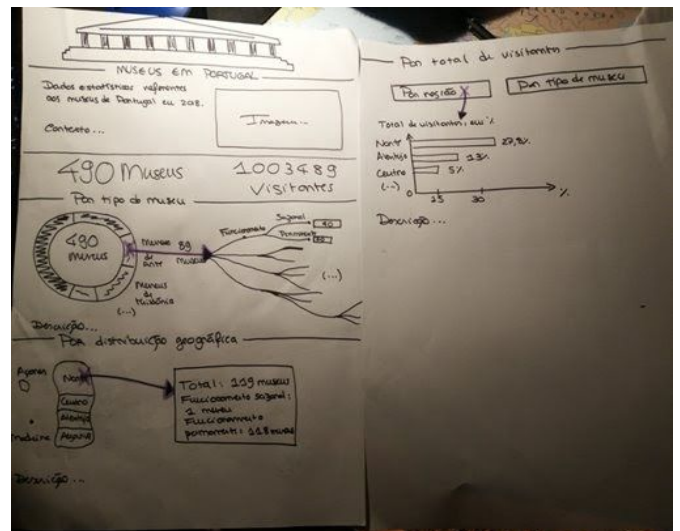 MUSEUS EM PORTUGAL
Dados estatísticos referentes
aos museus de Portugal em 2018.
Contexto...
Imagem...
490 Museus
1003489
Visitantes
Por tipo de museu
490
museus
Museus
de
Arte
89
Museus
Museus
de
História
(...)
Funcionamento
Sazonal
Permanente
(...)
Descrição...
Por distribuição geográfica
Açores
Norte
Centro
Alentejo
Algarve
Madeira
Total: 119 museus
Funcionamento sazonal:
1 museu
Funcionamento
permanente: 118 museus
Descrição...
Por total de visitantes
Por região
Por tipo de museu
Total de visitantes, em %
Norte 27,8%
Alentejo 13%
Centro 5%
(...)
0 15 30 %
Descrição...